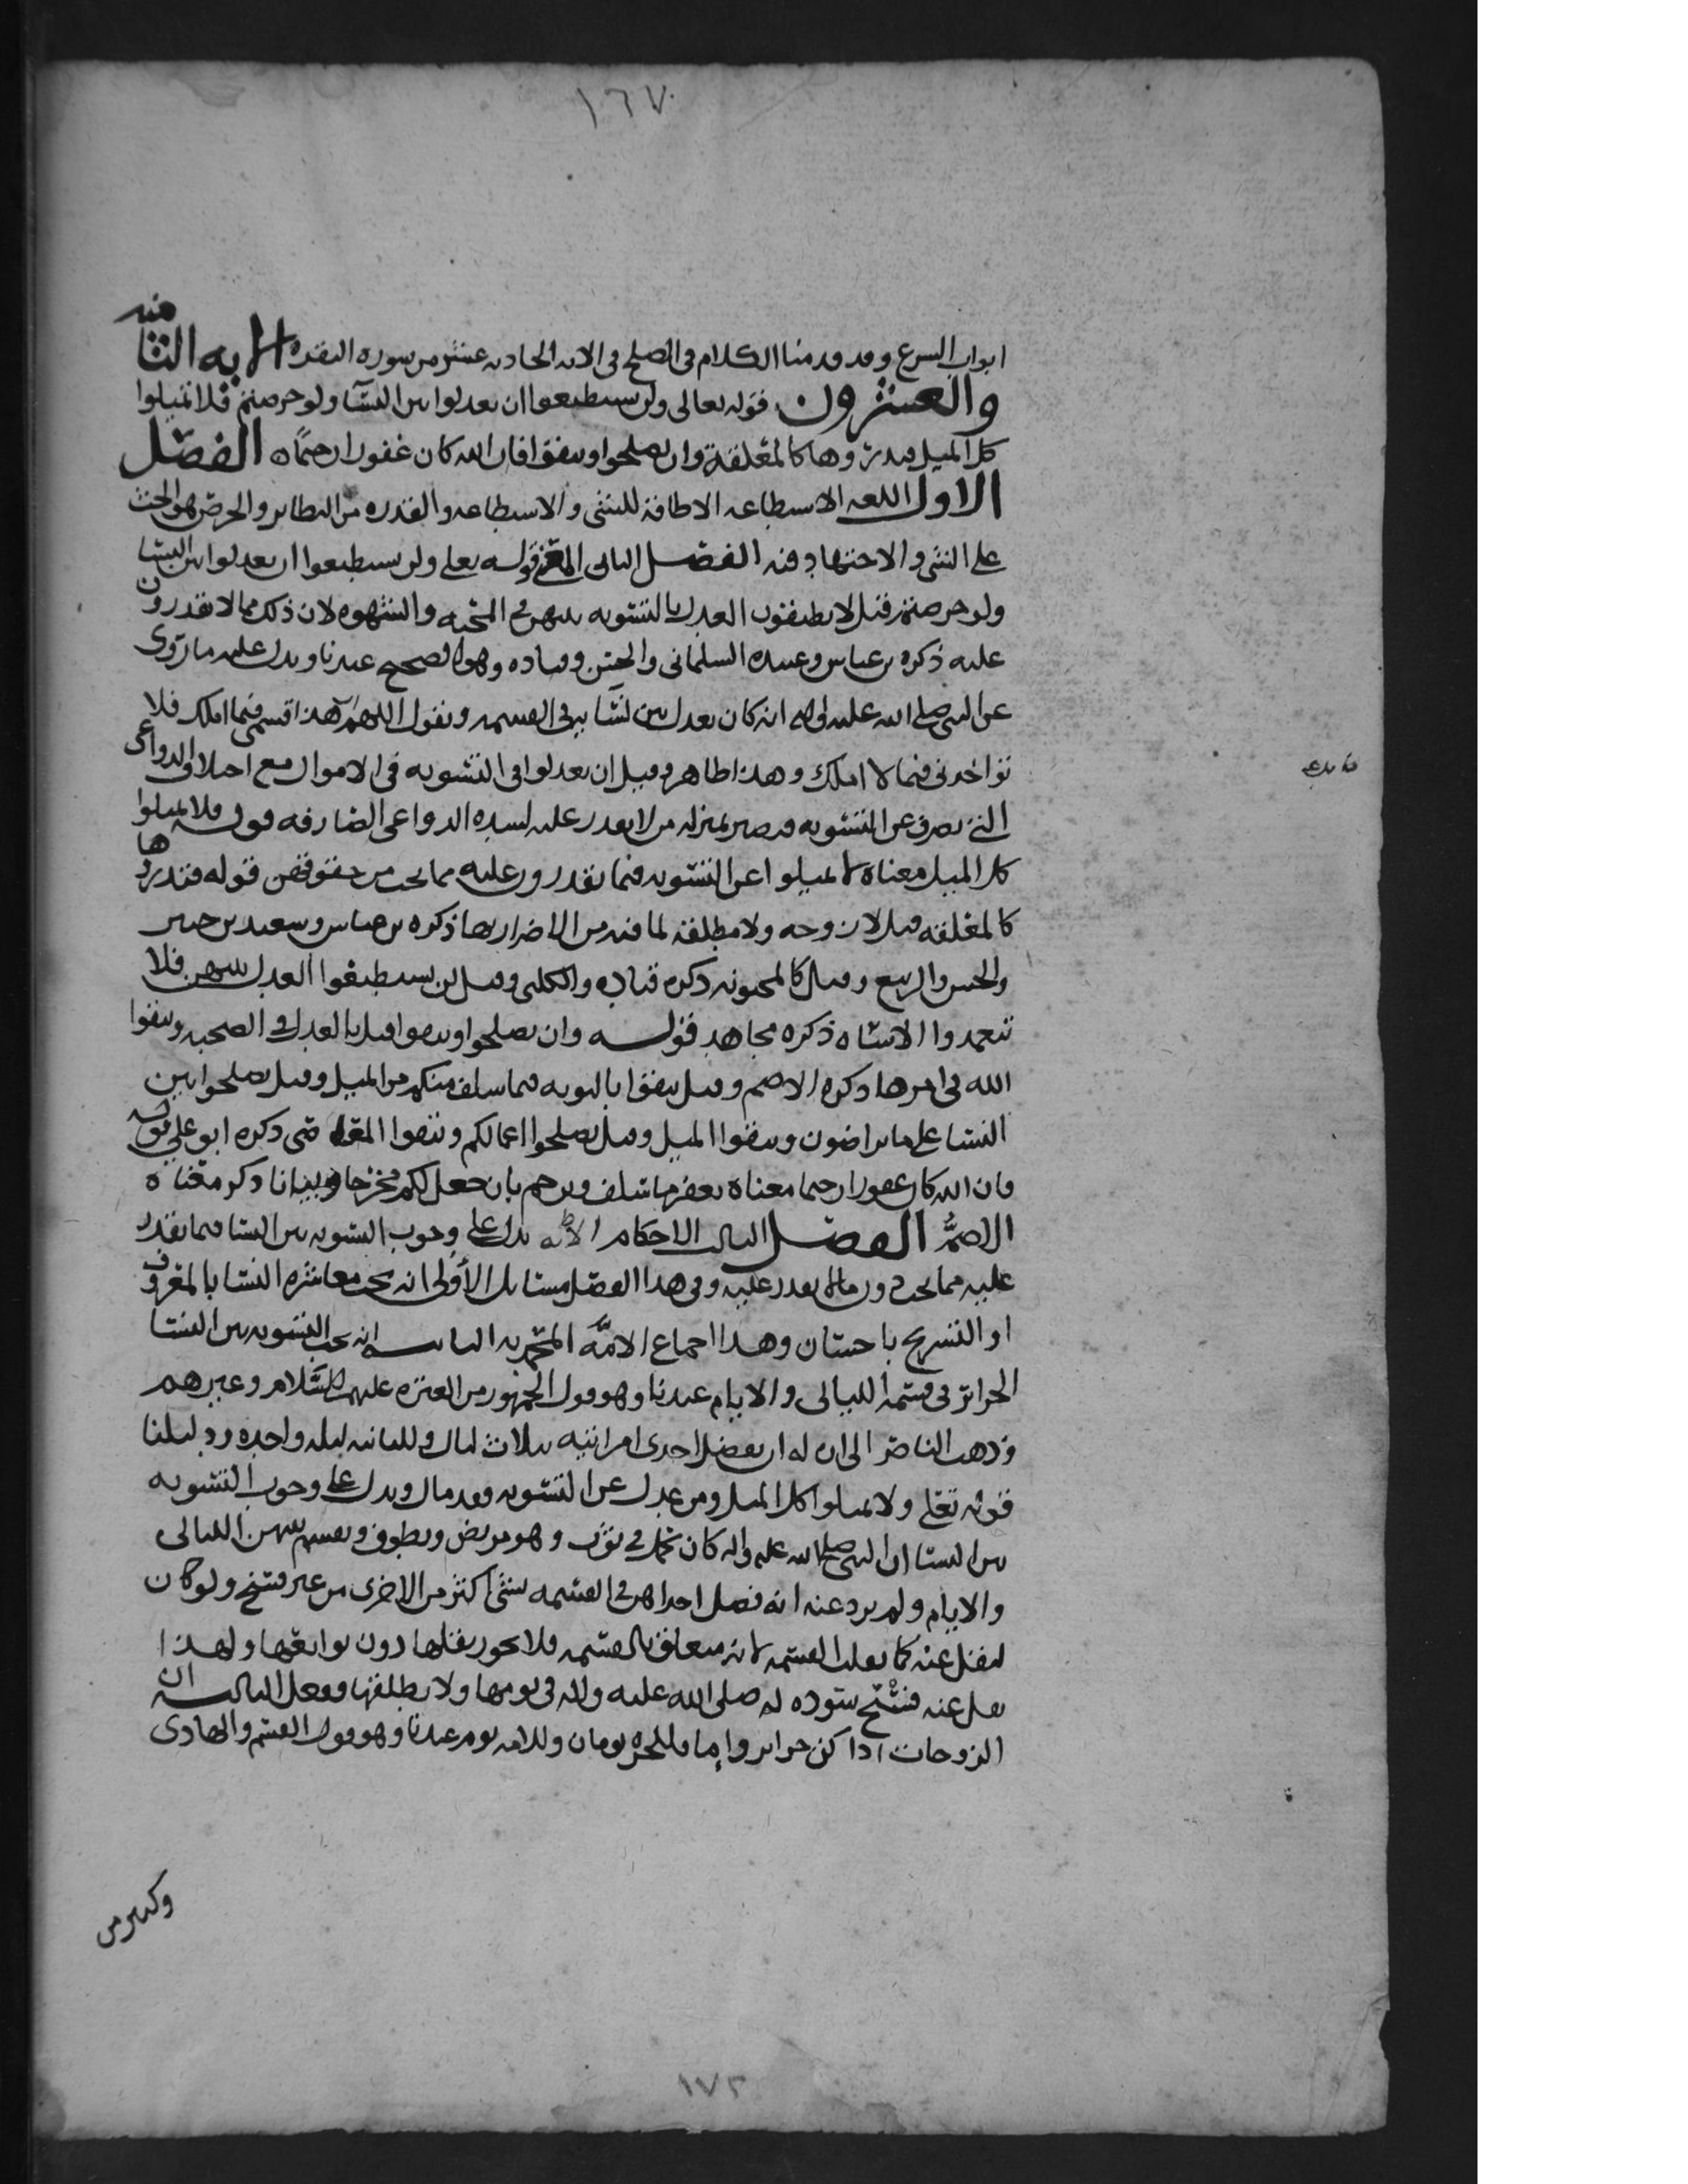 ١٦٧
ابواب الشرع وقد قدمنا الكلام في الصلح في الايه الحاديه عشر من سوره البقره الايه الثامنه
والعشرون قوله تعالى ولن تستطيعوا ان تعدلوا بين النسآ ولو حرصتم فلا تميلوا
كل الميل فتدروها كالمعلقة وان تصلحوا وتتقوا فان الله كان غفورا رحيمًا الفصل
الاول اللغه الاستطاعه الاطاقة للشي والاستطاعه والقدره من النظائر والحرص هو الحث
على الشي والاجتهاد فيه الفصل الثاني المعنى قوله تعلى ولن تستطيعوا ان تعدلوا بين النسا
ولو حرصتم قيل لا تطيقون العدل بالتسويه بينهن في المحبه والشهوه لان ذلك مما لا تقدرون
عليه ذكره بن عباس وعبيده السلماني والحسن وقتاده وهو الصحيح عندنا ويدل عليه ما روى
عن النبي صلى الله عليه واله انه كان يعدل بين نسآيه في القسمه ويقول اللهم هذا قسمي فيما املك فلا
تواخذني فيما لا املك وهذا ظاهر وقيل ان تعدلوا في التسويه في الاموال مع اختلاف الدواعى
التي تصرف عن التسويه فتصير بمنزله من لا يقدر عليه لشده الدواعى الصارفه قوله فلا تميلوا
كل الميل معناه لا تميلوا عن التسويه فيما تقدرون عليه مما يجب من حقوقهن قوله فتدروها
كالمعلقه قيل لا زوجه ولا مطلقه لما فيه من الاضرار بها ذكره بن عباس وسعيد بن جبير
والحسن والربيع وقيل كالمحبونه ذكره قتاده والكلبي وقيل لن تستطيعوا العدل بينهن فلا
تتعمدوا الاساه ذكره مجاهد قوله وان تصلحوا وتتقوا قيل بالعدل في الصحبه وتتقوا
الله في امرها ذكره الاصم وقيل تتقوا بالتوبه فيما سلف منكم من الميل وقيل تصلحوا بين
النسا على ما تراضون وتتقوا الميل وقيل تصلحوا اعمالكم وتتقوا ذكره ابو علي قوله
فان الله كان غفورا رحيما معناه يغفر ما سلف ويرحم بان جعل لكم مخرجا وبيانا ذكر معناه
الاصمُّ الفصل الثالث الاحكام الايه تدل على وجوب التسويه بين النسا فيما يقدر
عليه مما يجب دون مالا يقدر عليه وفي هذا الفصل مسائل الأولى انه يجب معاشره النسا بالمعروف
او التسريح باحسان وهذا اجماع الامَّه المحمديه الثانيه انه يجب التسويه بين النسا
الحرائر في قسمه الليالى والايام عندنا وهو قول الجمهور من العتره عليهم السلام وغيرهم
وذهب الناصر الى ان له ان يفضل احدى امراتيه بثلاث ليال وللثانيه ليله واحده دليلنا
قوله تعلى ولا تميلوا كل الميل ومن عدل عن التسويه فقد مال ويدل على وجوب التسويه
بين النسا ان النبي صلى الله عليه واله كان يحمل في ثوب وهو مريض ويطوف ويقسم بينهن الليالى
والايام ولم يرد عنه انه فضل احداهن في القسمه بشي اكثر من الاخرى من غير فسخ ولو كان
لنقل عنه كما نقلت القسمه لانه متعلق بالقسمه فلا يجوز نقلها دون توابعها ولهذا
نقل عنه فسخ سوده له صلى الله عليه واله في يومها ولا يطلقها ففعل الثالثه ان
الزوجات اذا كن حرائر وإما فللحره يومان وللامه يوم عندنا وهو قول القسم والهادى
وكثير من
١٧٢